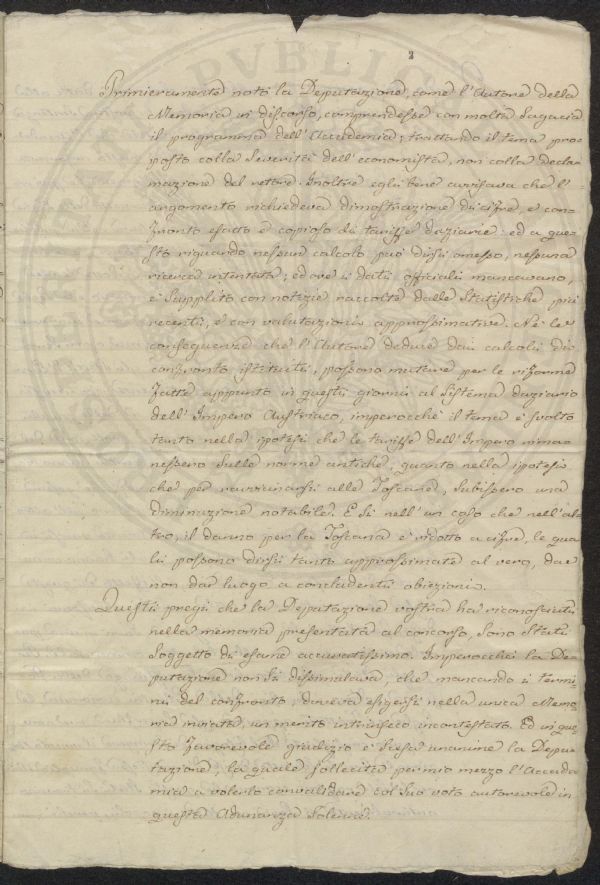 2
Primieramente notò la Deputazione, come l'Autore della
Memoria in discorso, comprendesse con molta sagacia
il programma dell'Accademia; trattando il tema pro-
posto colla severità dell'economista, non colla decla-
mazione del retore. Inoltre egli bene avvisava che l'
argomento richiedeva dimostrazione di cifre, e con-
fronto esatto e copioso di tariffe daziarie: ed a que-
sto riguardo nessun calcolo può dirsi omesso, nessuna
ricerca intentata; ed ove i dati officiali mancavano,
è supplito con notizie raccolte dalle Statistiche più
recenti, e con valutazioni approssimative. Nè le
conseguenze che l'Autore deduce dai calcoli di
confronto istituiti, possono mutare per le riforme
fatte appunto in questi giorni al Sistema daziario
dell'Impero Austriaco, imperocchè il tema è svolto
tanto nella ipotesi che le tariffe dell'Impero rima-
nessero sulle norme antiche, quanto nella ipotesi
che per ravvicinarsi alle Toscane, subissero una
diminuzione notabile. E sì nell'un caso che nell'al-
tro, il danno per la Toscana è ridotto a cifre, le qua-
li possono dirsi tanto approssimate al vero, da
non dar luogo a concludenti obiezioni.
Questi pregi che la Deputazione vostra ha riconosciuti
nella memoria presentata al concorso, sono stati
soggetto di esame accuratissimo. Imperocchè la De-
putazione non si dissimulava, che mancando i termi-
ni del confronto, doveva esigersi nella unica Memo-
ria inviata, un merito intrinseco incontestato. Ed in que-
sto favorevole giudizio è scesa unanime la Depu-
tazione, la quale sollecita per mio mezzo l'Accade-
mia a volerlo convalidare col suo voto autorevole in
questa Adunanza Solenne.
PVBLICA